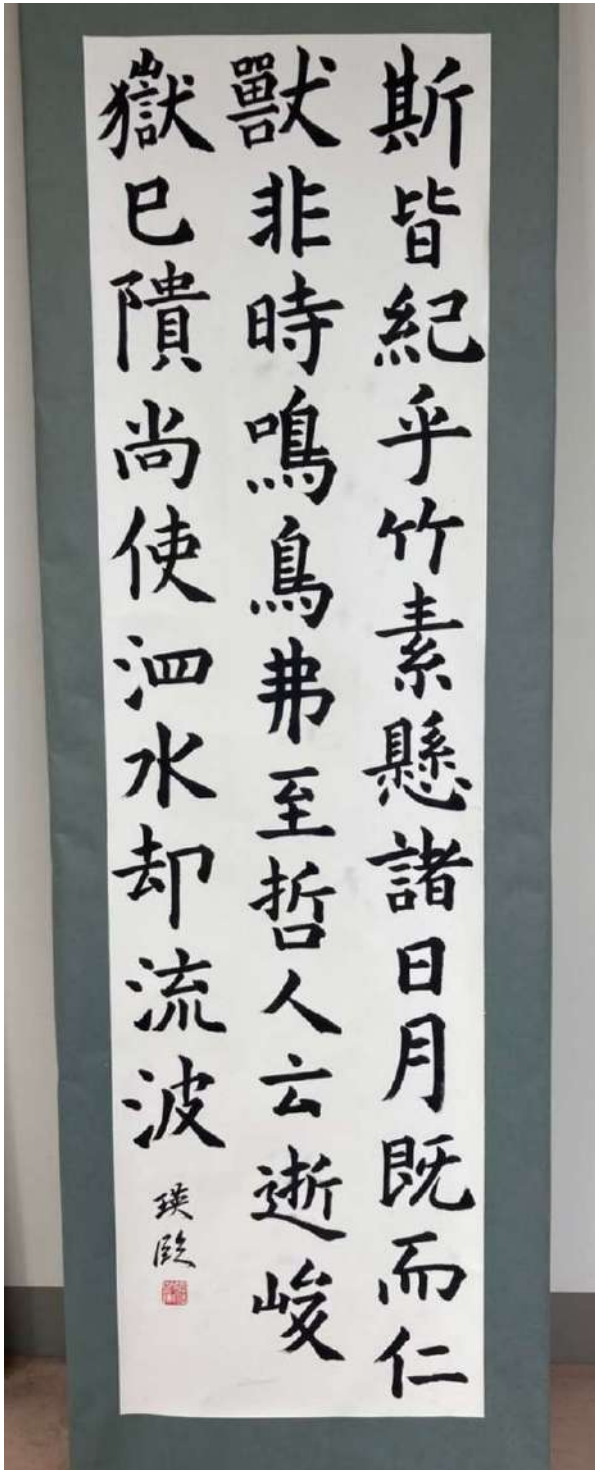 斯皆紀乎竹素懸諸日月既而仁
獸非時鳴鳥弗至哲人云逝峻
嶽已隤尚使泗水却流波
瑛